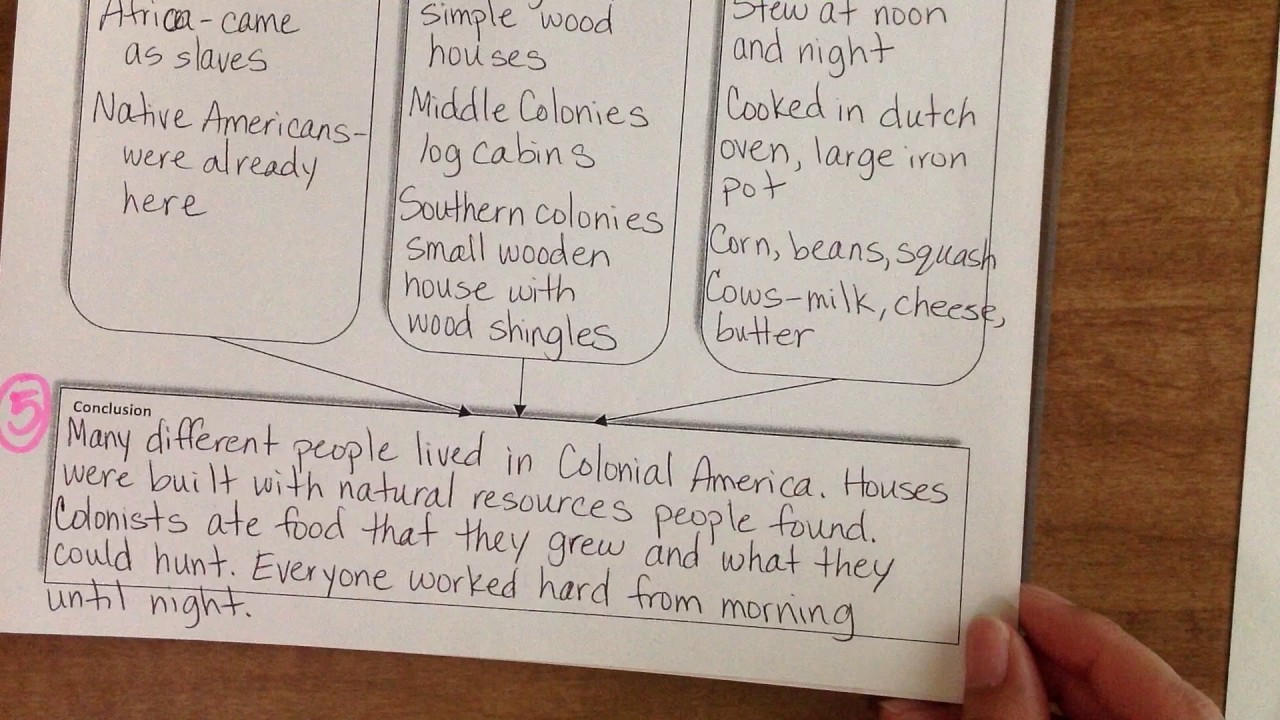 Africa - came
as slaves
Native Americans-
were already
here
simple wood
houses
Middle Colonies
log cabins
Southern colonies
small wooden
house with
wood shingles
Stew at noon
and night
Cooked in dutch
oven, large iron
pot
Corn, beans, squash
Cows-milk, cheese,
butter
5
Conclusion
Many different people lived in Colonial America. Houses
were built with natural resources people found.
Colonists ate food that they grew and what they
could hunt. Everyone worked hard from morning
until night.